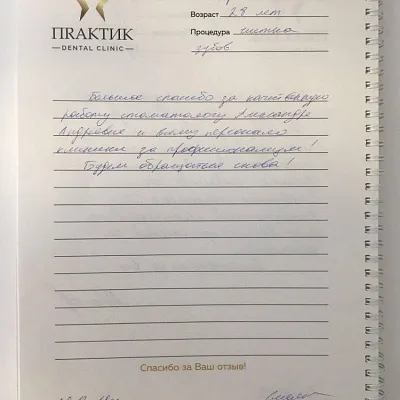 ПRАКТИК
— DENTAL CLINIC —
Возраст 28 лет
Процедура чистка
зубов
Большое спасибо за качественную
работу стоматологу Александре
Андреевне и всему персоналу
клиники за профессионализм!
Будем обращаться снова!
Спасибо за Ваш отзыв!